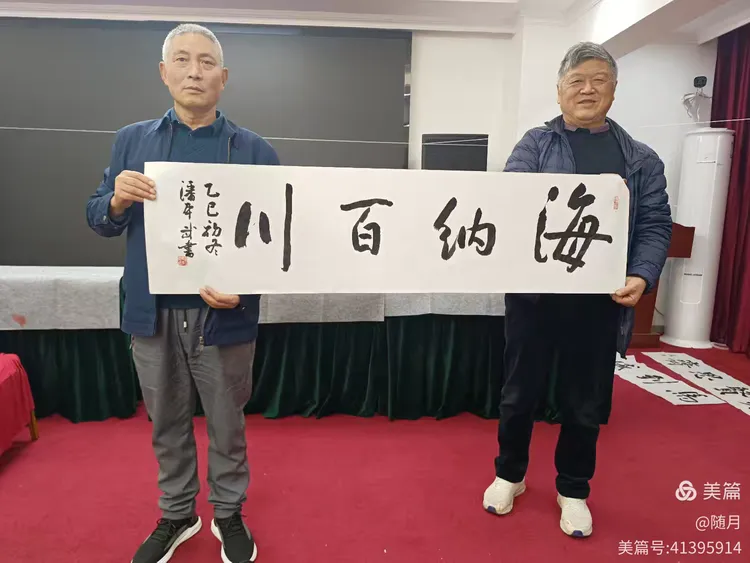 海纳百川
乙巳初冬
潘年武书
美篇
@随月
美篇号:41395914